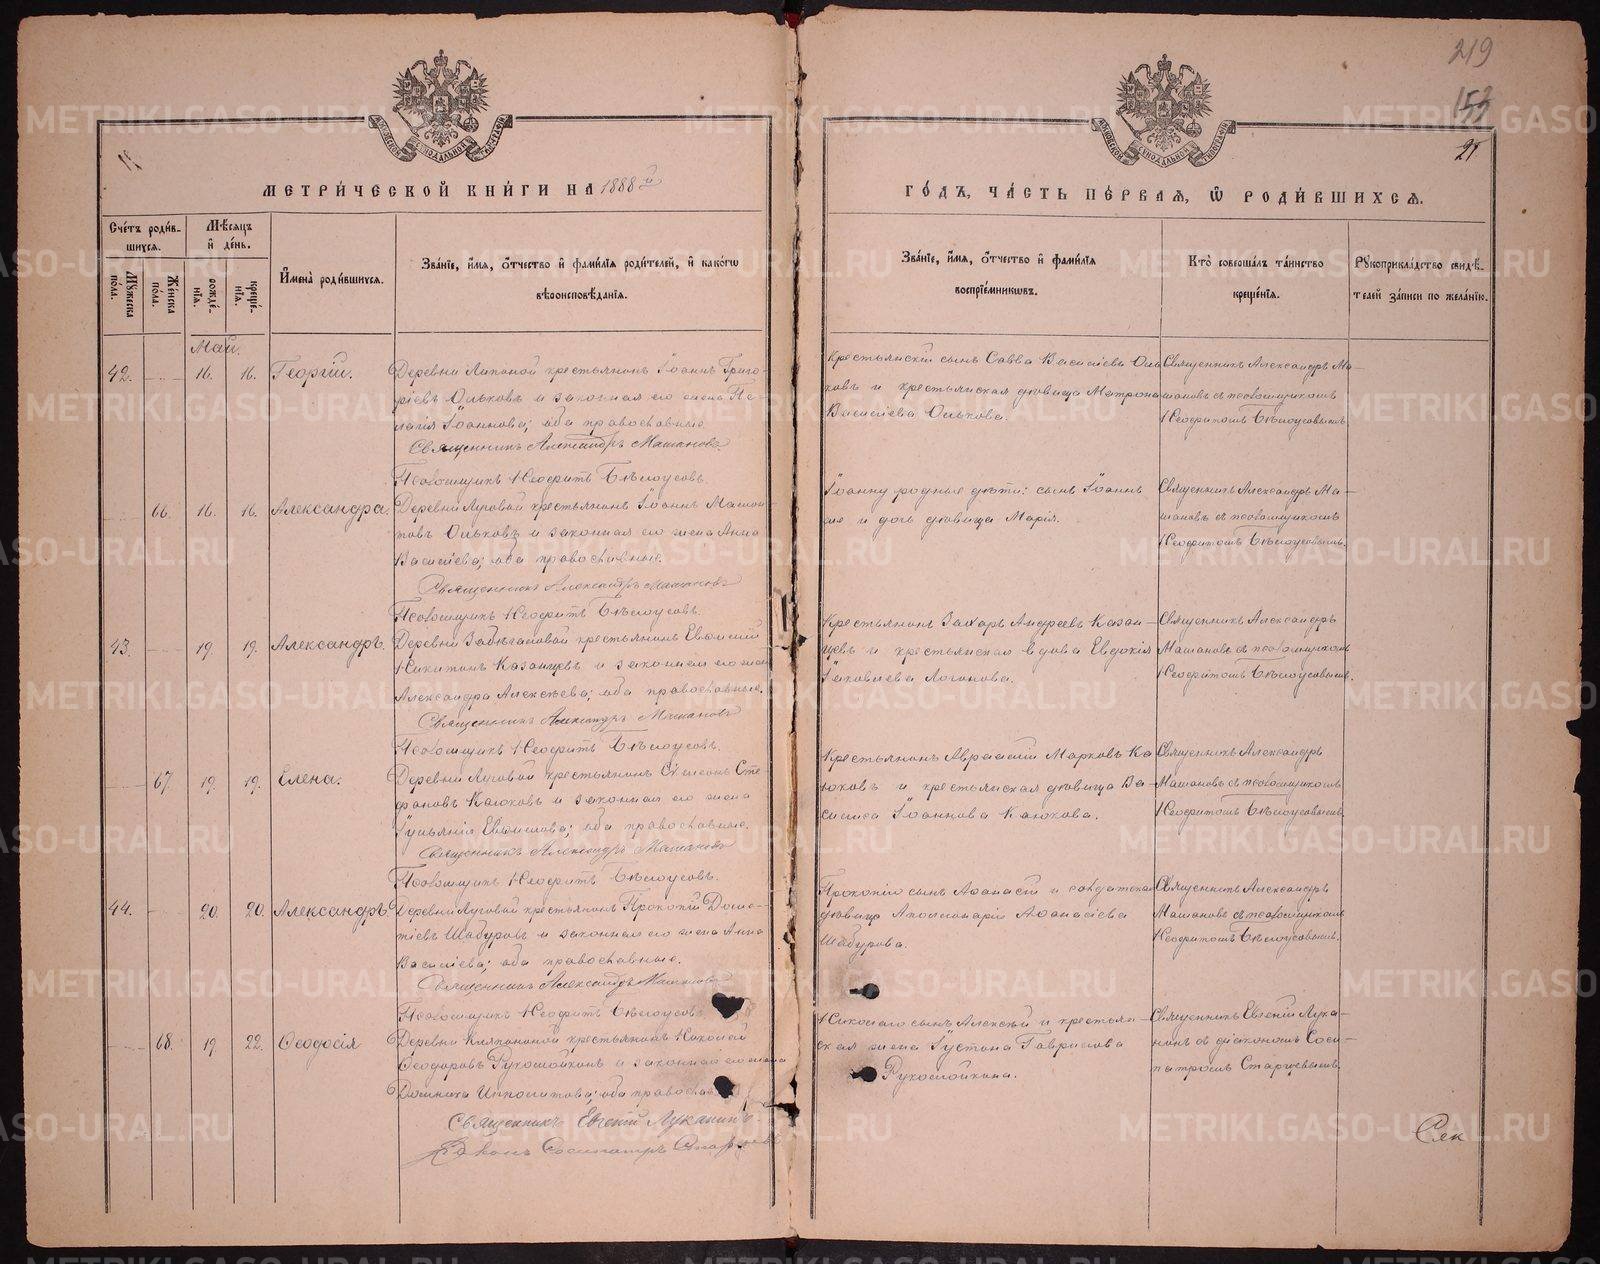 219
153
21
МЕТРИЧЕСКОЙ КНИГИ НА 1888й
ГОДЪ, ЧАСТЬ ПЕРВАЯ, Ѡ РОДИВШИХСЯ.
Счетъ родив-
шихся.
Мѣсяцъ
и день.
Мужеска
пола.
Женска
пола.
рожде-
нія.
креще-
нія.
Имена родившихся.
Званіе, имя, отчество и фамилія родителей, и какогω
вѣроисповѣданія.
Званіе, имя, отчество и фамилія
воспріемникωвъ.
Кто совершалъ таинство
крещенія.
Рукоприкладство свидѣ-
телей записи по желанію.
Май.
42. 16. 16. Георгій.
Деревни крестьянинъ Іоаннъ Григо-
ріевъ Ольковъ и законная его жена Пе-
лагія Іоаннова; оба православные.
Священникъ Александръ Машановъ.
Псаломщикъ Неофитъ Бѣлоусовъ.
Крестьянскій сынъ Савва Васильевъ Оль-
ковъ и крестьянская дѣвица Матрона
Васильева Олькова.
Священникъ Александръ Ма-
шановъ съ псаломщикомъ
Неофитомъ Бѣлоусовымъ.
66. 16. 16. Александра.
Деревни Луговой крестьянинъ Іоаннъ
Ольковъ и законная его жена Анна
Васильева; оба православные.
Священникъ Александръ Машановъ
Псаломщикъ Неофитъ Бѣлоусовъ.
Іоанну родные дѣти: сынъ Іоаннъ
и дочь дѣвица Марія.
Священникъ Александръ Ма-
шановъ съ псаломщикомъ
Неофитомъ Бѣлоусовымъ.
43. 19. 19. Александръ.
Деревни крестьянинъ Евѳимій
Никитинъ Казанцевъ и законная его жена
Александра Алексѣева; оба православные.
Священникъ Александръ Машановъ
Псаломщикъ Неофитъ Бѣлоусовъ.
Крестьянинъ Захаръ Андреевъ Казан-
цевъ и крестьянская вдова Евдокія
Іаковлева Логинова.
Священникъ Александръ
Машановъ съ псаломщикомъ
Неофитомъ Бѣлоусовымъ.
67. 19. 19. Елена.
Деревни Луговой крестьянинъ Сѵмеонъ Сте-
фановъ Каюковъ и законная его жена
Іуліанія Евѳимова; оба православные.
Священникъ Александръ Машановъ
Псаломщикъ Неофитъ Бѣлоусовъ.
Крестьянинъ Авраамій Марковъ Ка-
юковъ и крестьянская дѣвица Ва-
силиса Іоаннова Каюкова.
Священникъ Александръ
Машановъ съ псаломщикомъ
Неофитомъ Бѣлоусовымъ.
44. 20. 20. Александръ.
Деревни Луговой крестьянинъ Прокопій
Шабуровъ и законная его жена Анна
Васильева; оба православные.
Священникъ Александръ Машановъ
Псаломщикъ Неофитъ Бѣлоусовъ.
Прокопію сынъ Аѳанасій и солдатская
дѣвица Аполлинарія Аѳанасіева
Шабурова.
Священникъ Александръ
Машановъ съ псаломщикомъ
Неофитомъ Бѣлоусовымъ.
68. 19 22. Ѳеодосія
Деревни крестьянинъ Николай
Ѳеодоровъ Рукомойкинъ и законная его жена
Домника Ипполитова; оба православ
Священникъ Евгеній Луканинъ.
Діаконъ Сосипатръ Старцевъ
Николаю сынъ Алексѣй и крестьян-
ская жена Іустина Гаврилова
Рукомойкина.
Священникъ Евгеній Лука-
нинъ съ діакономъ Соси-
патромъ Старцевымъ.
METRIKI.GASO-URAL.RU